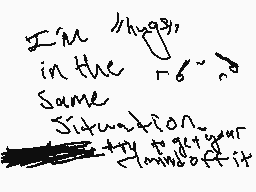 I'm "hugs"
in the
same
situation
try to get your
mind off it